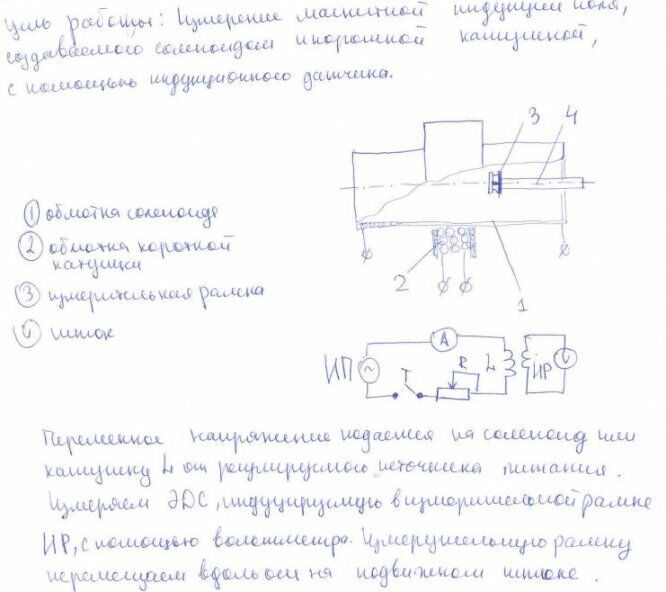 Цель работы: Измерение магнитной индукции поля,
создаваемого соленоидом и короткой катушкой,
с помощью индукционного датчика.
3
4
① обмотка соленоида
② обмотка короткой
катушки
③ измерительная рамка
④ шток
2
1
ИП
А
T
R
L
ИР
V
Переменное напряжение подается на соленоид или
катушку L от регулируемого источника питания.
Измеряем ЭДС, индуцируемую в измерительной рамке
ИР, с помощью вольтметра. Измерительную рамку
перемещаем вдоль оси на подвижном штоке.